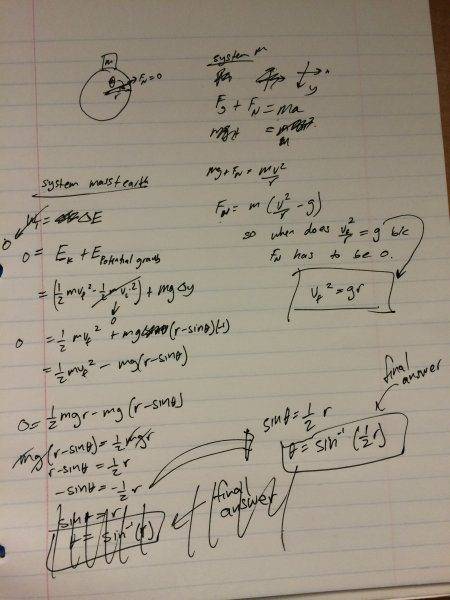 m
θ
F_N = 0
r
system m
x
y
F_g + F_N = ma
mg + F_N = mv²/r
F_N = m (v²/r - g)
so when does v_f²/r = g b/c
F_N has to be 0.
v_f² = gr
system mass + earth
W_T = ΔE
0
0 = E_K + E_Potential grav
= (½ m v_f² - ½ m v_i²) + mg Δy
0
0 = ½ m v_f² + mg (r - sinθ)(-1)
= ½ m v_f² - mg (r - sinθ)
0 = ½ mgr - mg (r - sinθ)
mg (r - sinθ) = ½ mgr
r - sinθ = ½ r
-sinθ = -½ r
sinθ = r
= sin⁻¹ (r)
final answer
sinθ = ½ r
θ = sin⁻¹ (½ r)
final
answer